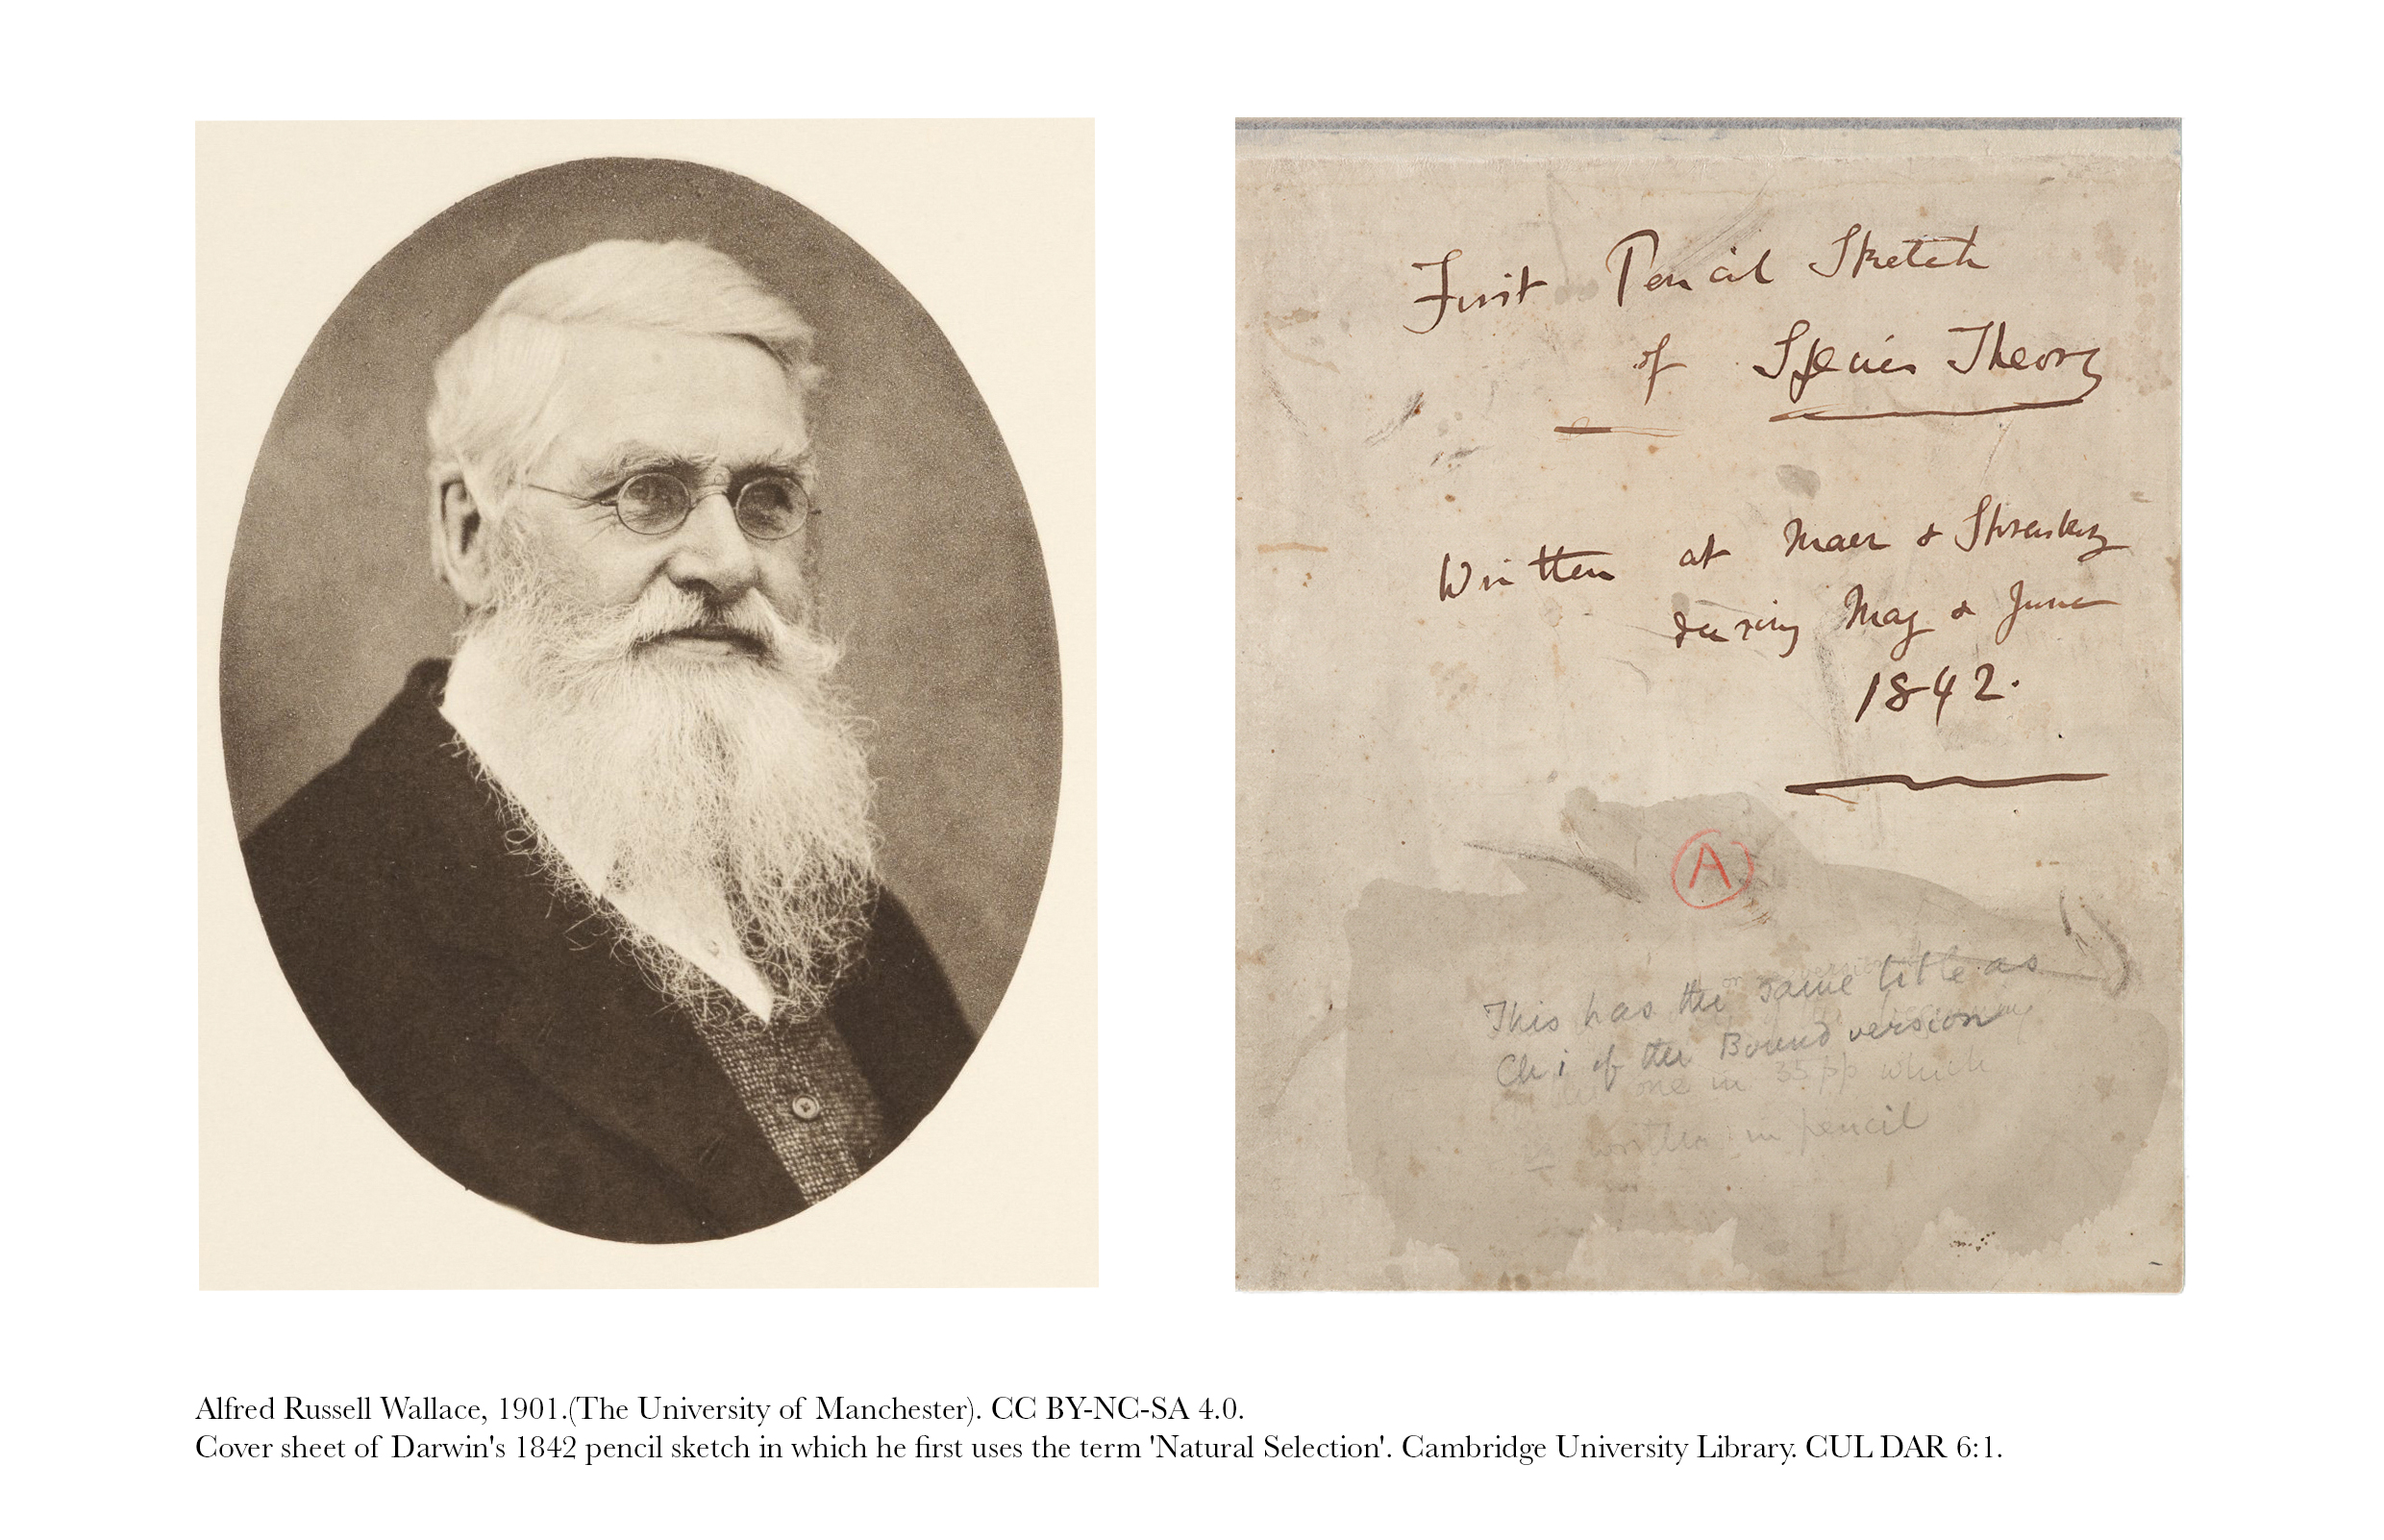 First Pencil Sketch
of Species Theory
Written at Maer & Shrewsbury
during May & June
1842.
A
This has the same title as
Ch i of the Bound version
one in 35 pp which
is written in pencil
Alfred Russell Wallace, 1901.(The University of Manchester). CC BY-NC-SA 4.0.
Cover sheet of Darwin's 1842 pencil sketch in which he first uses the term 'Natural Selection'. Cambridge University Library. CUL DAR 6:1.